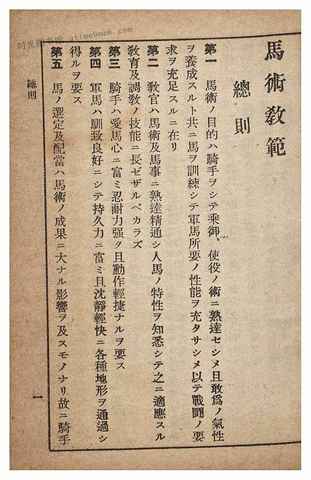 馬術教範
總則
第一 馬術ノ目的ハ騎手ヲシテ乘御、使役ノ術ニ熟達セシメ且敢爲ノ氣性
ヲ養成スルト共ニ馬ヲ訓練シテ軍馬所要ノ性能ヲ充タサシメ以テ戰鬪ノ要
求ヲ充足スルニ在リ
第二 敎官ハ馬術及馬事ニ熟達精通シ人馬ノ特性ヲ知悉シテ之ニ適應スル
敎育及調敎ノ技能ニ長ゼザルベカラズ
第三 騎手ハ愛馬心ニ富ミ忍耐力强ク且動作輕捷ナルヲ要ス
第四 軍馬ハ訓致良好ニシテ持久力ニ富ミ且沈靜輕快ニ各種地形ヲ通過シ
得ルヲ要ス
第五 馬ノ選定及配當ハ馬術ノ成果ニ大ナル影響ヲ及スモノナリ故ニ騎手
總則
一